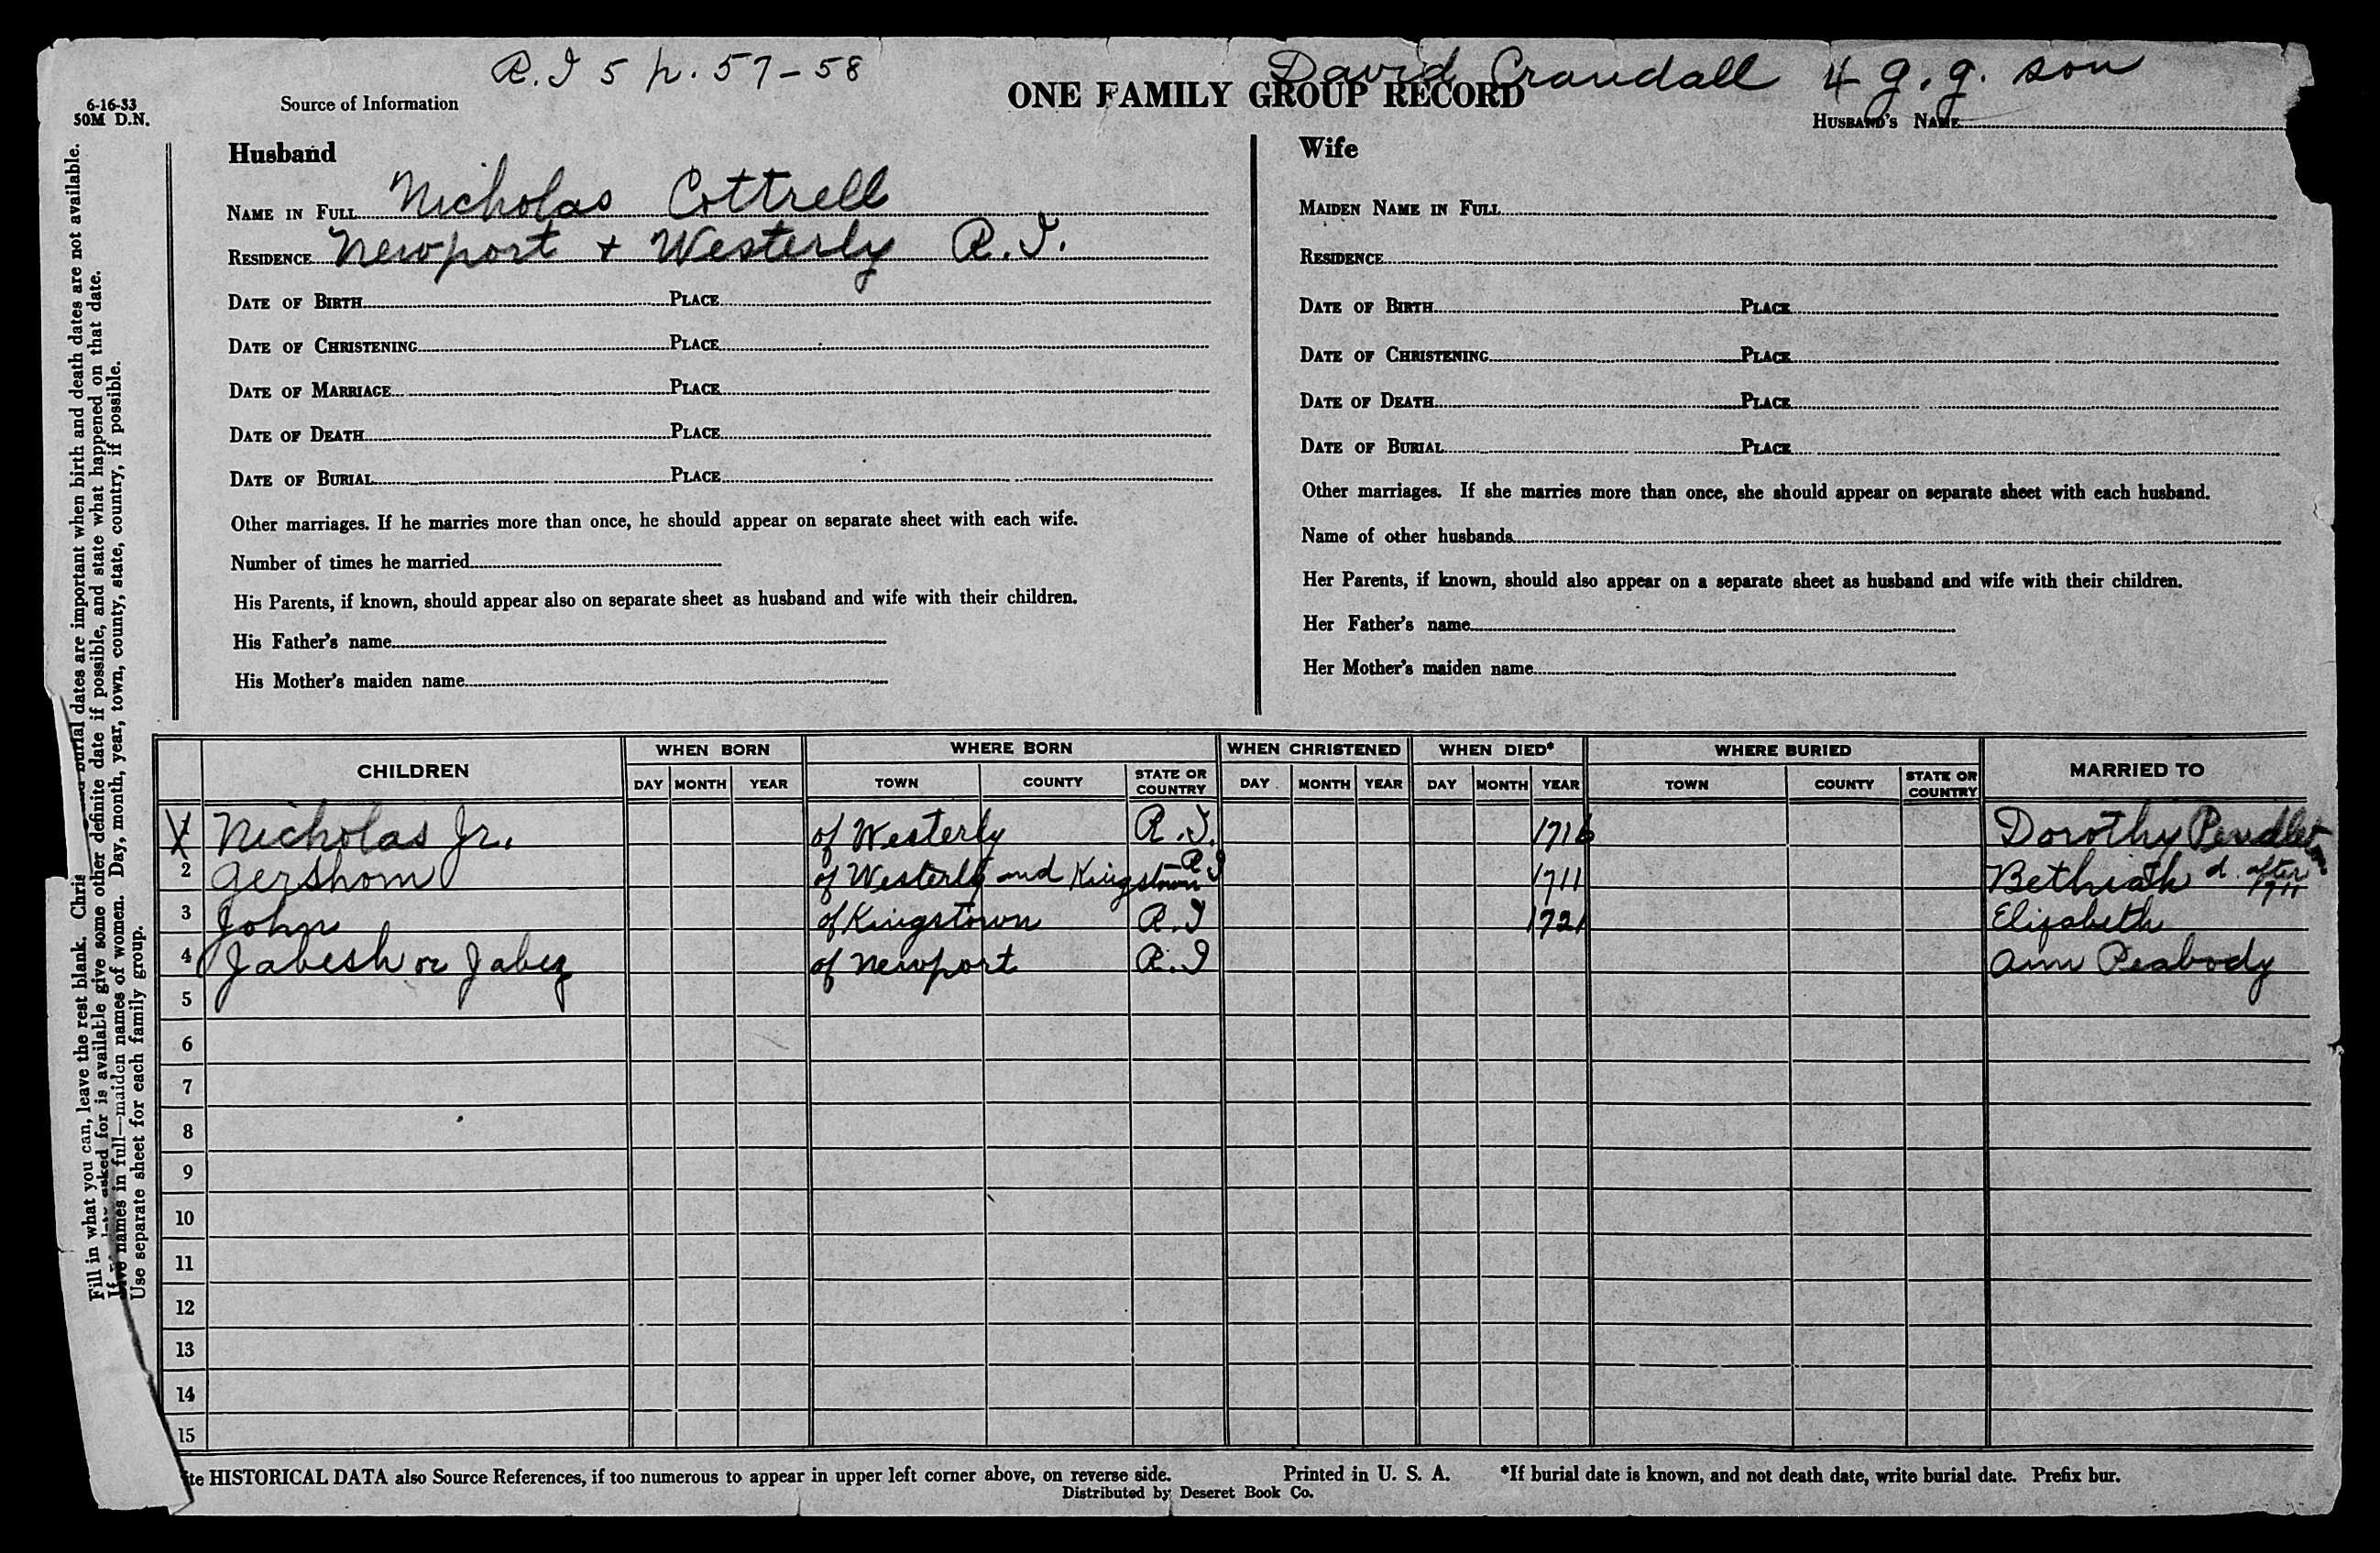 R. I 5 p. 57-58
David Crandall 4 g. g. son
6-16-33
50M D.N.
Source of Information
ONE FAMILY GROUP RECORD
HUSBAND'S NAME
Husband
NAME IN FULL Nicholas Cottrell
RESIDENCE Newport + Westerly R.I.
DATE OF BIRTH PLACE
DATE OF CHRISTENING PLACE
DATE OF MARRIAGE PLACE
DATE OF DEATH PLACE
DATE OF BURIAL PLACE
Other marriages. If he marries more than once, he should appear on separate sheet with each wife.
Number of times he married
His Parents, if known, should appear also on separate sheet as husband and wife with their children.
His Father's name
His Mother's maiden name
Wife
MAIDEN NAME IN FULL
RESIDENCE
DATE OF BIRTH PLACE
DATE OF CHRISTENING PLACE
DATE OF DEATH PLACE
DATE OF BURIAL PLACE
Other marriages. If she marries more than once, she should appear on separate sheet with each husband.
Name of other husbands
Her Parents, if known, should also appear on a separate sheet as husband and wife with their children.
Her Father's name
Her Mother's maiden name
Fill in what you can, leave the rest blank. Chris burial dates are important when birth and death dates are not available.
If asked for is available give some other definite date if possible, and state what happened on that date.
Give names in full—maiden names of women. Day, month, year, town, county, state, country, if possible.
Use separate sheet for each family group.
CHILDREN WHEN BORN WHERE BORN WHEN CHRISTENED WHEN DIED* WHERE BURIED MARRIED TO
DAY MONTH YEAR TOWN COUNTY STATE OR COUNTRY DAY MONTH YEAR DAY MONTH YEAR TOWN COUNTY STATE OR COUNTRY
X Nicholas Jr. of Westerly R.I. 1716 Dorothy Pendleton
2 Gershom of Westerly and Kingstown R I 1711 Bethiah d. after 1711
3 John of Kingstown R.I 1721 Elizabeth
4 Jabesh or Jabez of Newport R.I Ann Peabody
5
6
7
8
9
10
11
12
13
14
15
ite HISTORICAL DATA also Source References, if too numerous to appear in upper left corner above, on reverse side. Printed in U. S. A. *If burial date is known, and not death date, write burial date. Prefix bur.
Distributed by Deseret Book Co.